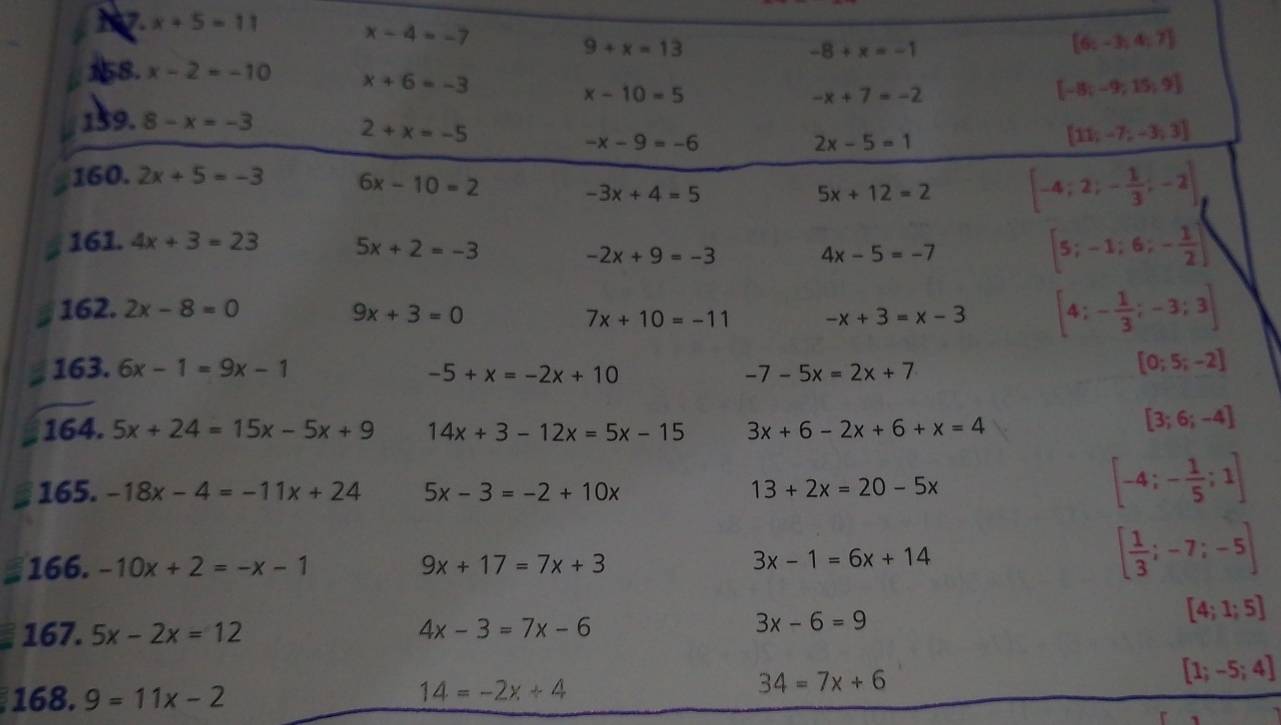 157. x + 5 = 11 x − 4 = −7 9 + x = 13 −8 + x = −1 [6; −3; 4; 7]
158. x − 2 = −10 x + 6 = −3 x − 10 = 5 −x + 7 = −2 [−8; −9; 15; 9]
159. 8 − x = −3 2 + x = −5 −x − 9 = −6 2x − 5 = 1 [11; −7; −3; 3]
160. 2x + 5 = −3 6x − 10 = 2 −3x + 4 = 5 5x + 12 = 2 [−4; 2; −1/3; −2]
161. 4x + 3 = 23 5x + 2 = −3 −2x + 9 = −3 4x − 5 = −7 [5; −1; 6; −1/2]
162. 2x − 8 = 0 9x + 3 = 0 7x + 10 = −11 −x + 3 = x − 3 [4; −1/3; −3; 3]
163. 6x − 1 = 9x − 1 −5 + x = −2x + 10 −7 − 5x = 2x + 7 [0; 5; −2]
164. 5x + 24 = 15x − 5x + 9 14x + 3 − 12x = 5x − 15 3x + 6 − 2x + 6 + x = 4 [3; 6; −4]
165. −18x − 4 = −11x + 24 5x − 3 = −2 + 10x 13 + 2x = 20 − 5x [−4; −1/5; 1]
166. −10x + 2 = −x − 1 9x + 17 = 7x + 3 3x − 1 = 6x + 14 [1/3; −7; −5]
167. 5x − 2x = 12 4x − 3 = 7x − 6 3x − 6 = 9 [4; 1; 5]
168. 9 = 11x − 2 14 = −2x + 4 34 = 7x + 6 [1; −5; 4]